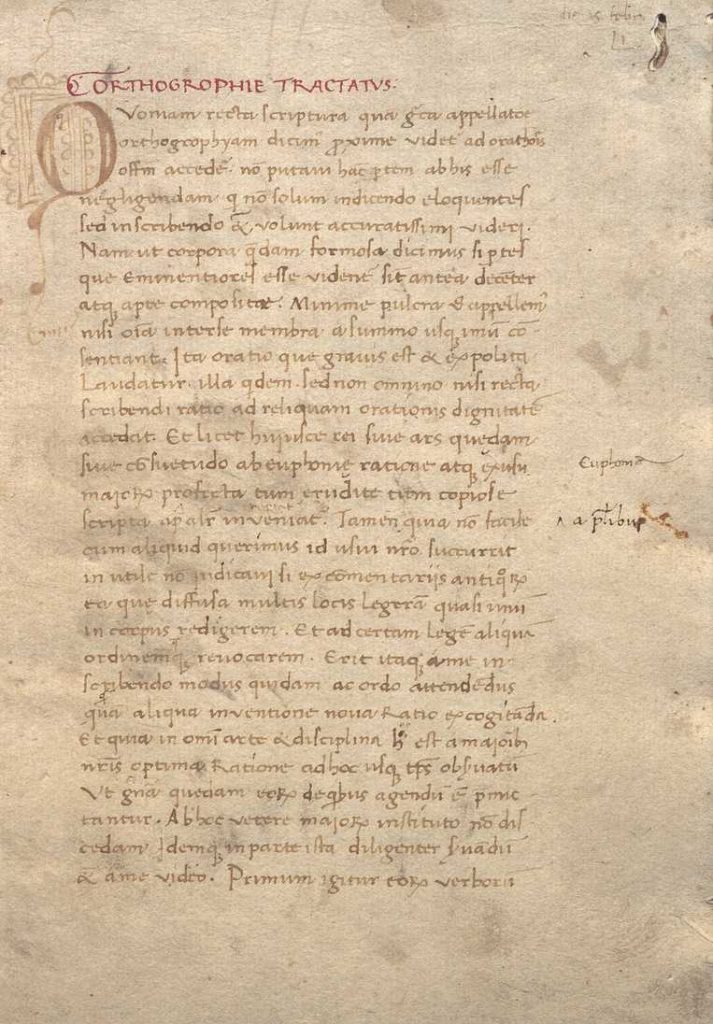 die 15 febr
ORTHOGROPHIE TRACTATVS.
Quoniam recta scriptura qua gr̄ca appellatoē
orthogrophyam dicim' proxime videt' ad orationis
offm̄ accedē. nō putavi hac p̄tem abhis esse
negligendam q nō solum indicendo eloquentes
sed inscribendo &̄ volunt accuratissimi videri.
Nam ut corpora q̄dam formosa dicimus si ptes
que Eminentiores esse vident' sit antea decēter
atq; apte composite. Minime pulcra &̄ appellem'
nisi oīa interse membra asummo usq; imū cō-
sentiant. Ita oratio que gravis est & expolita
Laudatur. illa qdem. sed non omnino nisi recta
scribendi ratio ad reliquam orationis dignitatē
accedat. Et licet huiusce rei sive ars quedam
sive cōsuetudo ab euphonię ratione atq; exusu
maioꝝ profecta tum erudite tum copiose
scripta inveniat'. Tamen quia nō facile
cum aliquid querimus id usui nr̄o succurrit
in utile nō iudicavi si ex cōmentariis antiqoꝝ
ea quę diffusa multis locis legerā quasi unū
in corpus redigerem. Et ad certam legē aliquā
ordinemq; revocarem. Erit itaq; ame in
scribendo modus quidam ac ordo attendēdus
aliqua inventione nova Ratio excogitāda.
Et quia in omī arte & disciplina h est amaioīb
nr̄is optima Ratione adhoc usq; tp̄s obs̄vatū
Vt quedam eoꝝ deqbus agendū ē pmic-
tantur. Abhoc vetere maioꝝ instituto nō dis-
cedam Idemq; inparte ista diligenter s̄vādū
& ame video. Primum igitur eoꝝ verborū
Euphonia
a pl̄ibus